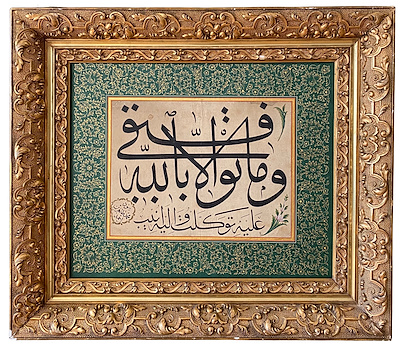 وما توفيقي الا بالله
عليه توكلت واليه انيب